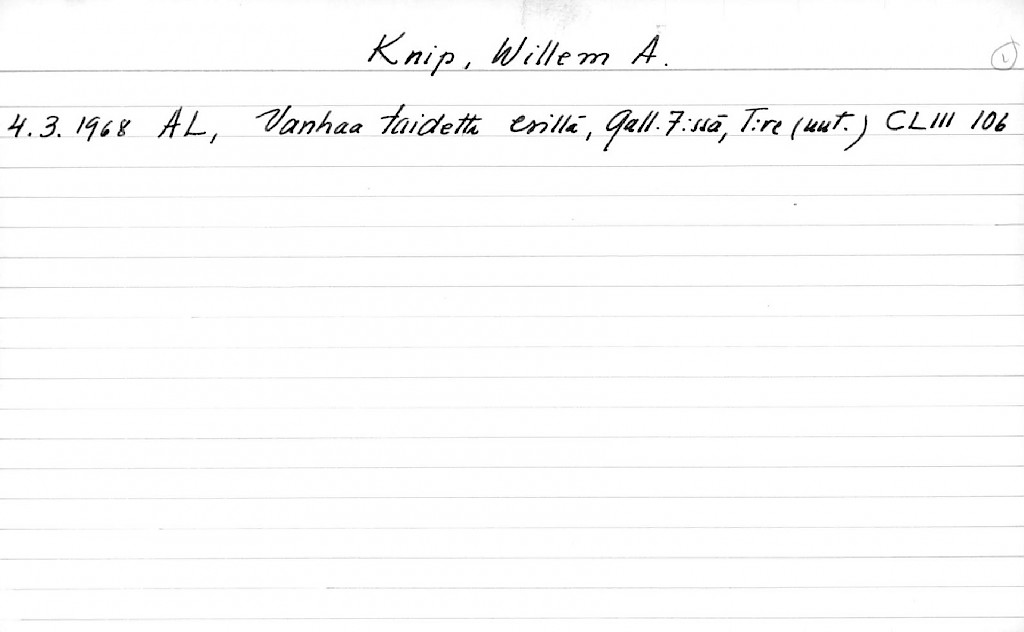 Knip, Willem A.
4.3.1968 AL, Vanhaa taidetta esillä, Gall. 7:ssä, T:re (uut.) CLIII 106